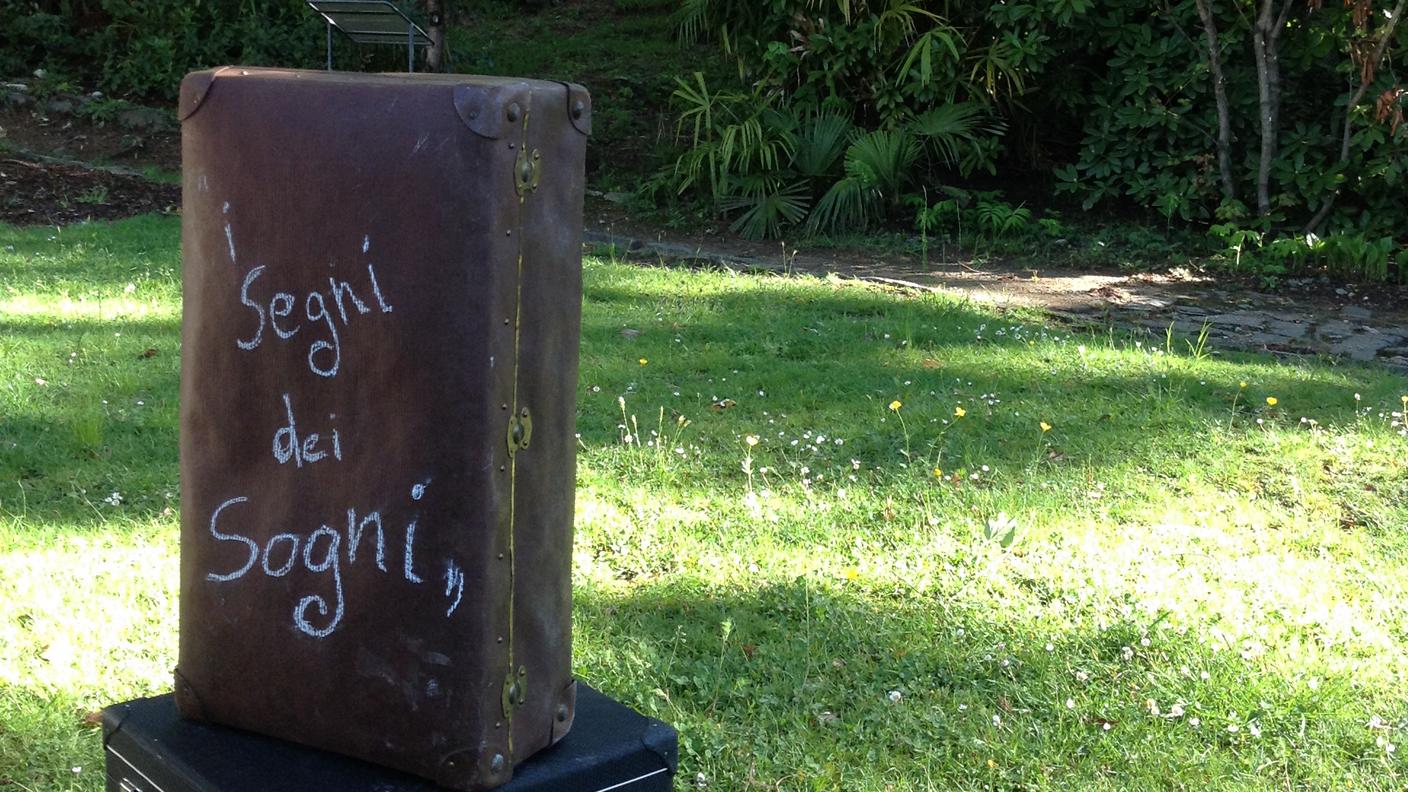 "i
Segni
dei
Sogni"